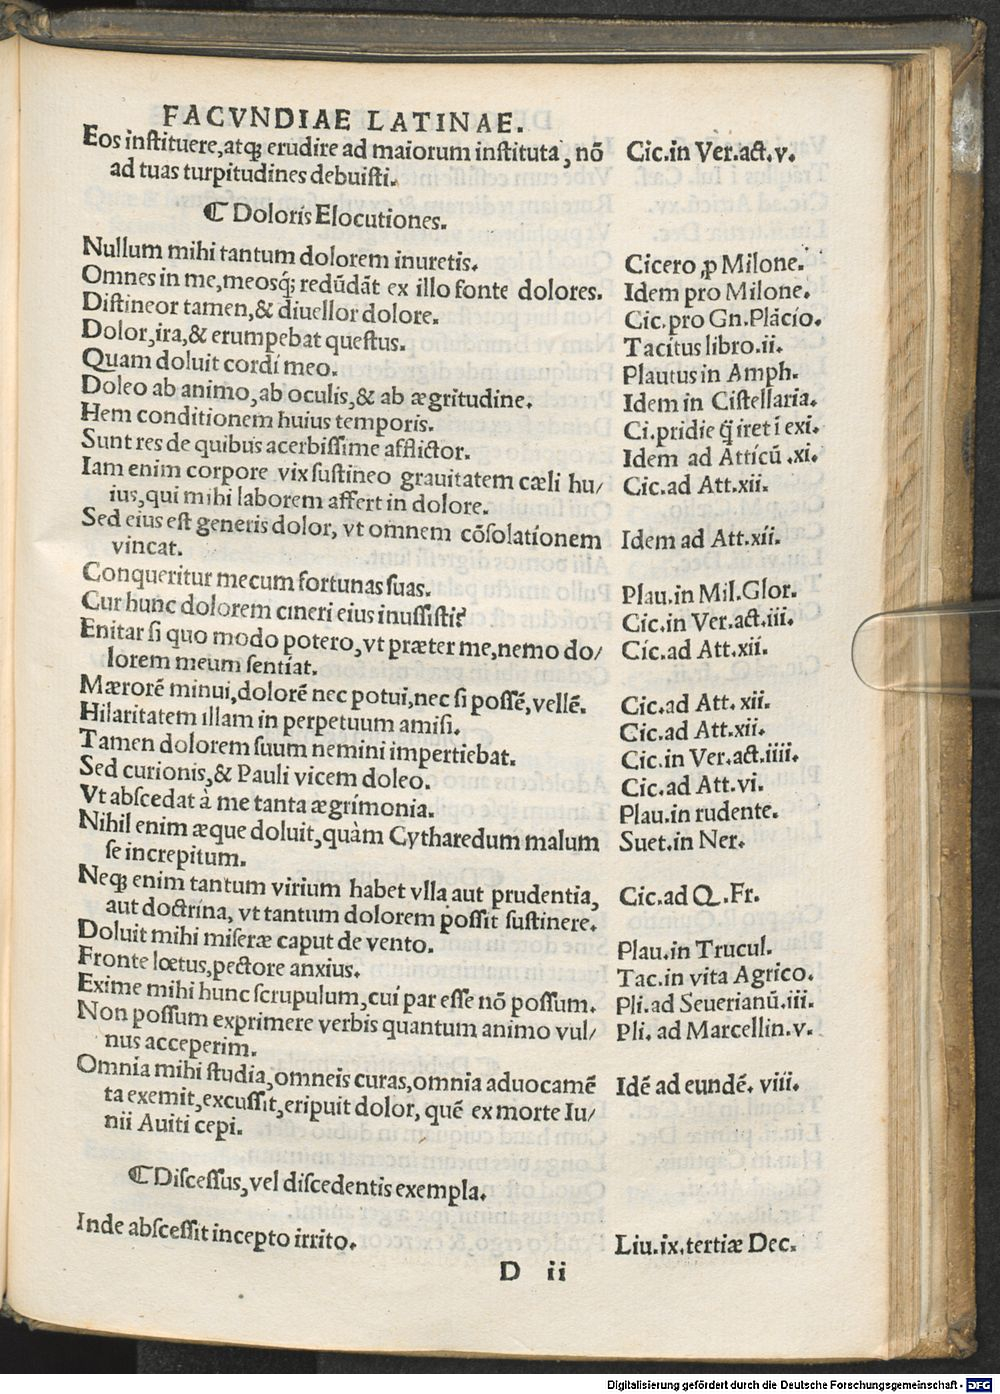 FACVNDIAE LATINAE.
Eos instituere, atq; erudire ad maiorum instituta, nõ Cic.in Ver.act.v.
ad tuas turpitudines debuisti.
☾ Doloris Elocutiones.
Nullum mihi tantum dolorem inuretis. Cicero ꝓ Milone.
Omnes in me, meosq́; redũdãt ex illo fonte dolores. Idem pro Milone.
Distineor tamen, & diuellor dolore. Cic.pro Gn.Plácio.
Dolor, ira, & erumpebat questus. Tacitus libro.ii.
Quam doluit cordi meo. Plautus in Amph.
Doleo ab animo, ab oculis, & ab ægritudine. Idem in Cistellaria.
Hem conditionem huius temporis. Ci.pridie q̃ iret ĩ exi.
Sunt res de quibus acerbissime afflictor. Idem ad Atticũ .xi.
Iam enim corpore vix sustineo grauitatem cæli hu/ Cic.ad Att.xii.
ius, qui mihi laborem affert in dolore.
Sed eius est generis dolor, vt omnem cõsolationem Idem ad Att.xii.
vincat.
Conqueritur mecum fortunas suas. Plau.in Mil.Glor.
Cur hunc dolorem cineri eius inussisti? Cic.in Ver.act.iii.
Enitar si quo modo potero, vt præter me, nemo do/ Cic.ad Att.xii.
lorem meum sentiat.
Mærorẽ minui, dolorẽ nec potui, nec si possẽ, vellẽ. Cic.ad Att. xii.
Hilaritatem illam in perpetuum amisi. Cic.ad Att.xii.
Tamen dolorem suum nemini impertiebat. Cic.in Ver.act.iiii.
Sed curionis, & Pauli vicem doleo. Cic.ad Att.vi.
Vt abscedat à me tanta ægrimonia. Plau.in rudente.
Nihil enim æque doluit, quàm Cytharedum malum Suet.in Ner.
se increpitum.
Neq; enim tantum virium habet vlla aut prudentia, Cic.ad Q.Fr.
aut doctrina, vt tantum dolorem possit sustinere.
Doluit mihi miseræ caput de vento. Plau.in Trucul.
Fronte lœtus, pectore anxius. Tac.in vita Agrico.
Exime mihi hunc scrupulum, cui par esse nõ possum. Pli.ad Seuerianũ.iii.
Non possum exprimere verbis quantum animo vul/ Pli. ad Marcellin.v.
nus acceperim.
Omnia mihi studia, omneis curas, omnia aduocamẽ Idẽ ad eundẽ. viii.
ta exemit, excussit, eripuit dolor, quẽ ex morte Iu/
nii Auiti cepi.
☾ Discessus, vel discedentis exempla.
Inde abscessit incepto irrito. Liu.ix.tertiæ Dec.
D ii
Digitalisierung gefördert durch die Deutsche Forschungsgemeinschaft - DFG